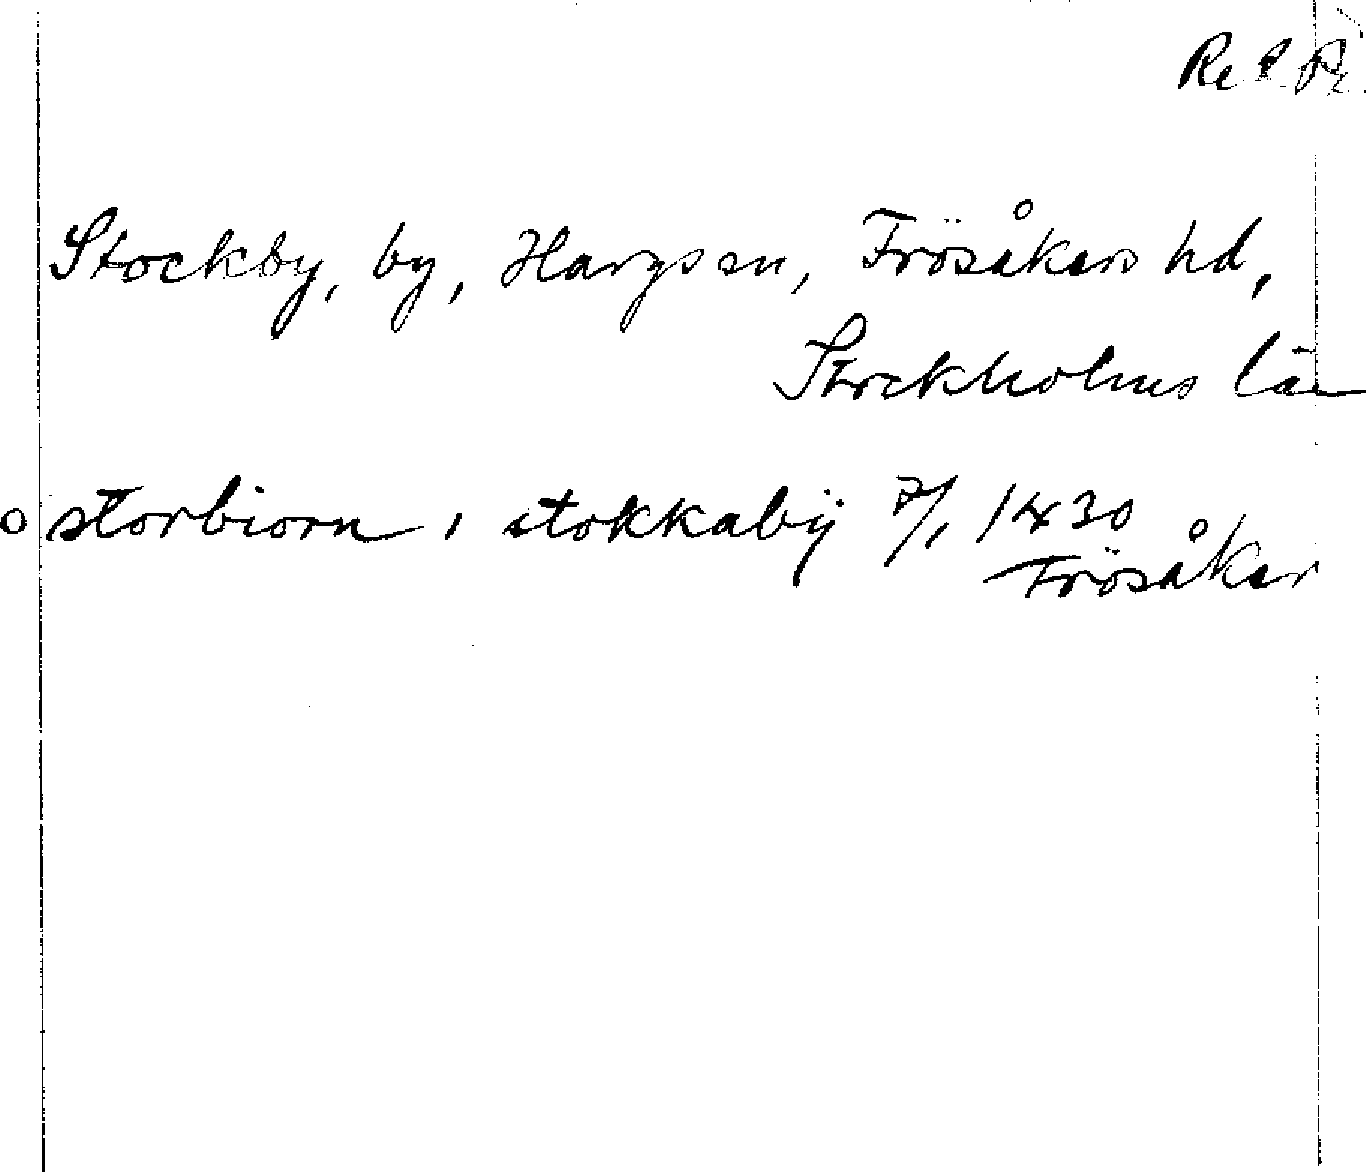 Stockby, by, Hargs sn, Frösåkers hd,
Stockholms län
o storbiorn i stokkabÿ 7/1 1430
Frösåker